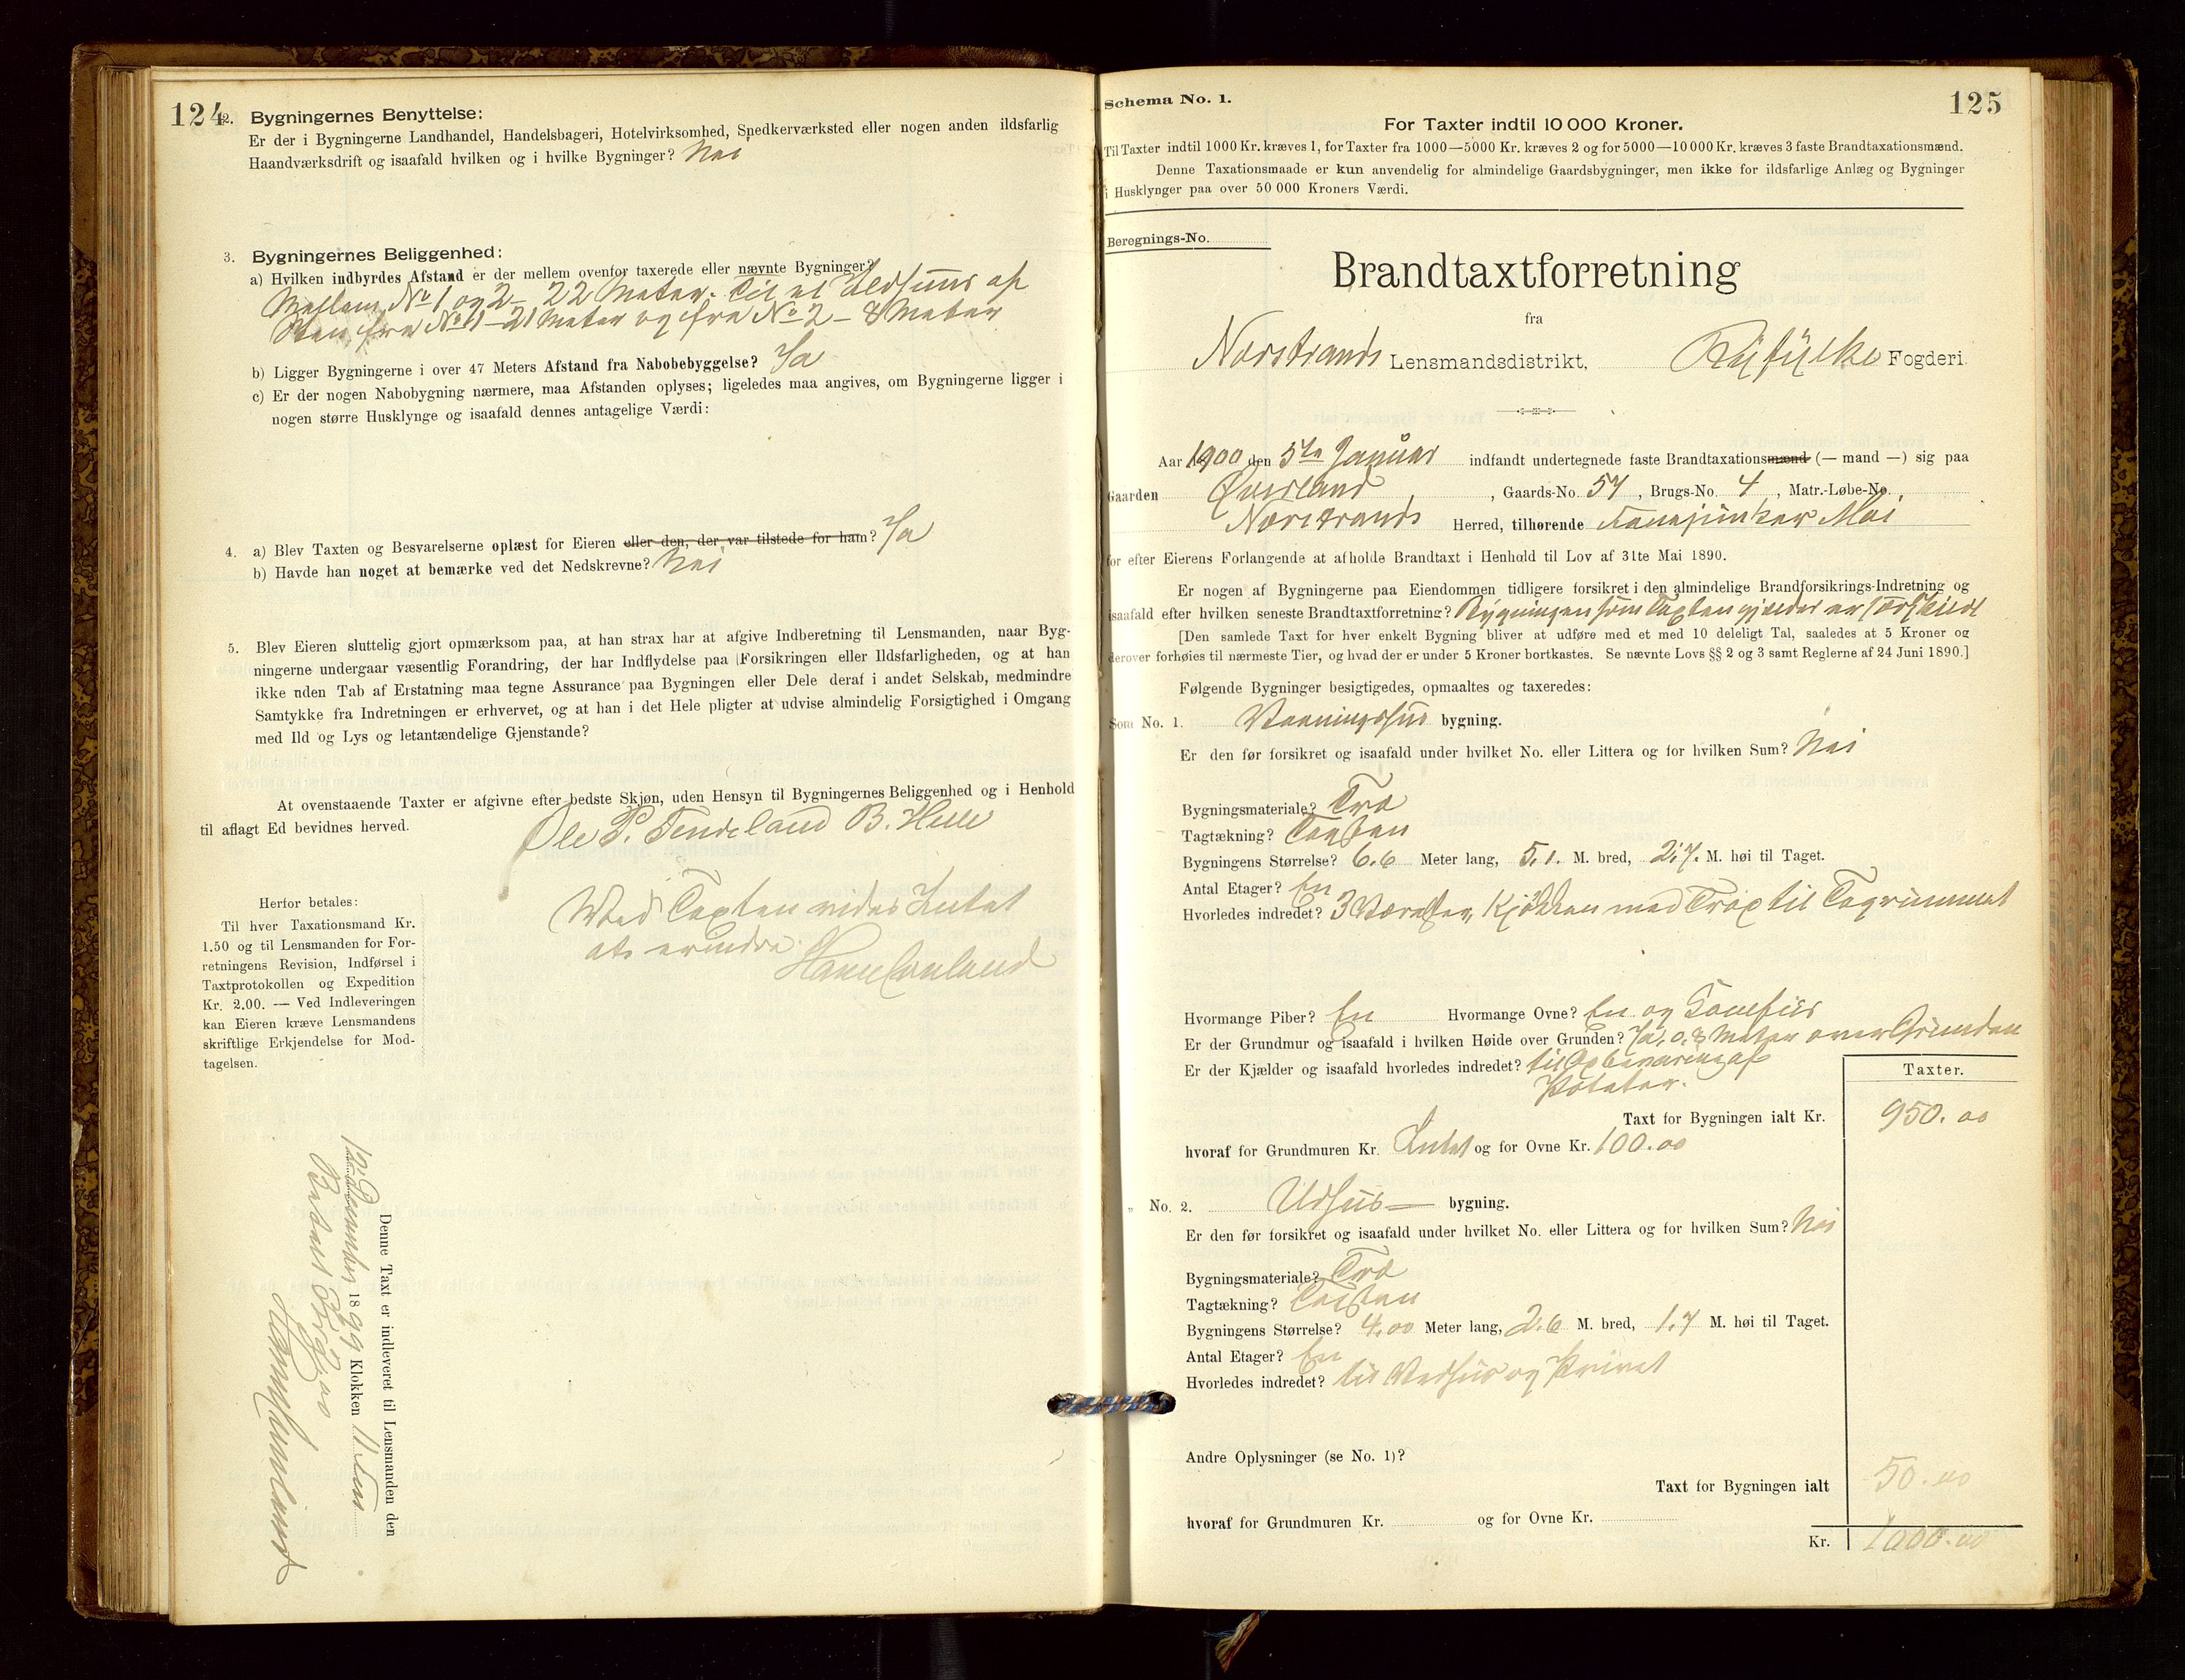 124
2. Bygningernes Benyttelse:
Er der i Bygningerne Landhandel, Handelsbageri, Hotelvirksomhed, Snedkerværksted eller nogen anden ildsfarlig
Haandværksdrift og isaafald hvilken og i hvilke Bygninger? Nei
3. Bygningernes Beliggenhed:
a) Hvilken indbyrdes Afstand er der mellem ovenfor taxerede eller nævnte Bygninger?
Mellem No 1 og 2 - 22 Meter. Til et Ildhuus af
Sten fra No 1 - 21 Meter og fra No 2 - 8 Meter
b) Ligger Bygningerne i over 47 Meters Afstand fra Nabobebyggelse? Ja
c) Er der nogen Nabobygning nærmere, maa Afstanden oplyses; ligeledes maa angives, om Bygningerne ligger i
nogen større Husklynge og isaafald dennes antagelige Værdi:
4. a) Blev Taxten og Besvarelserne oplæst for Eieren eller den, der var tilstede for ham? Ja
b) Havde han noget at bemærke ved det Nedskrevne? Nei
5. Blev Eieren sluttelig gjort opmærksom paa, at han strax har at afgive Indberetning til Lensmanden, naar Byg-
ningerne undergaar væsentlig Forandring, der har Indflydelse paa Forsikringen eller Ildsfarligheden, og at han
ikke uden Tab af Erstatning maa tegne Assurance paa Bygningen eller Dele deraf i andet Selskab, medmindre
Samtykke fra Indretningen er erhvervet, og at han i det Hele pligter at udvise almindelig Forsigtighed i Omgang
med Ild og Lys og letantændelige Gjenstande?
At ovenstaaende Taxter er afgivne efter bedste Skjøn, uden Hensyn til Bygningernes Beliggenhed og i Henhold
til aflagt Ed bevidnes herved.
Ole P. Tendeland B. Helle
Herfor betales:
Til hver Taxationsmand Kr.
1.50 og til Lensmanden for For-
retningens Revision, Indførsel i
Taxtprotokollen og Expedition
Kr. 2.00. — Ved Indleveringen
kan Eieren kræve Lensmandens
skriftlige Erkjendelse for Mod-
tagelsen.
Ved Taxten vides Intet
at erindre.
Denne Taxt er indleveret til Lensmanden den
12 December 1899 Klokken 11
125
Schema No. 1.
For Taxter indtil 10 000 Kroner.
Til Taxter indtil 1000 Kr. kræves 1, for Taxter fra 1000—5000 Kr. kræves 2 og for 5000—10 000 Kr. kræves 3 faste Brandtaxationsmænd.
Denne Taxationsmaade er kun anvendelig for almindelige Gaardsbygninger, men ikke for ildsfarlige Anlæg og Bygninger
i Husklynger paa over 50 000 Kroners Værdi.
Beregnings-No.
Brandtaxtforretning
fra
Nærstrands Lensmandsdistrikt, Ryfylke Fogderi.
Aar 1900 den 5te Januar indfandt undertegnede faste Brandtaxationsmænd (— mand —) sig paa
Gaarden Øverland, Gaards-No. 57, Brugs-No. 4, Matr.-Løbe-No.
Nærstrands Herred, tilhørende
for efter Eierens Forlangende at afholde Brandtaxt i Henhold til Lov af 31te Mai 1890.
Er nogen af Bygningerne paa Eiendommen tidligere forsikret i den almindelige Brandforsikrings-Indretning og
isaafald efter hvilken seneste Brandtaxtforretning? Bygningen som Taxten gjælder er særskildt
[Den samlede Taxt for hver enkelt Bygning bliver at udføre med et med 10 deleligt Tal, saaledes at 5 Kroner og
derover forhøies til nærmeste Tier, og hvad der er under 5 Kroner bortkastes. Se nævnte Lovs §§ 2 og 3 samt Reglerne af 24 Juni 1890.]
Følgende Bygninger besigtigedes, opmaaltes og taxeredes:
Som No. 1. Vaaningshus bygning.
Er den før forsikret og isaafald under hvilket No. eller Littera og for hvilken Sum? Nei
Bygningsmateriale? Træ
Tagtækning? Tagsten
Bygningens Størrelse? 6.6 Meter lang, 5.1. M. bred, 2.7. M. høi til Taget.
Antal Etager? En
Hvorledes indredet? 3 Værelser, Kjøkken med Trap til Tagrummet
Hvormange Piber? En Hvormange Ovne? En og Komfür
Er der Grundmur og isaafald i hvilken Høide over Grunden? Ja, 0.8 Meter over Grunden
Er der Kjælder og isaafald hvorledes indredet? til Opbevaring af
Poteter.
Taxter.
Taxt for Bygningen ialt Kr. 950.00
hvoraf for Grundmuren Kr. Intet og for Ovne Kr. 100.00
" No. 2. Udhus bygning.
Er den før forsikret og isaafald under hvilket No. eller Littera og for hvilken Sum? Nei
Bygningsmateriale? Træ
Tagtækning? Tagsten
Bygningens Størrelse? 4.00 Meter lang, 2.6 M. bred, 1.7 M. høi til Taget.
Antal Etager? En
Hvorledes indredet? til Vedhus og Privet
Andre Oplysninger (se No. 1)?
Taxt for Bygningen ialt 50.00
hvoraf for Grundmuren Kr. og for Ovne Kr.
Kr. 1000.00